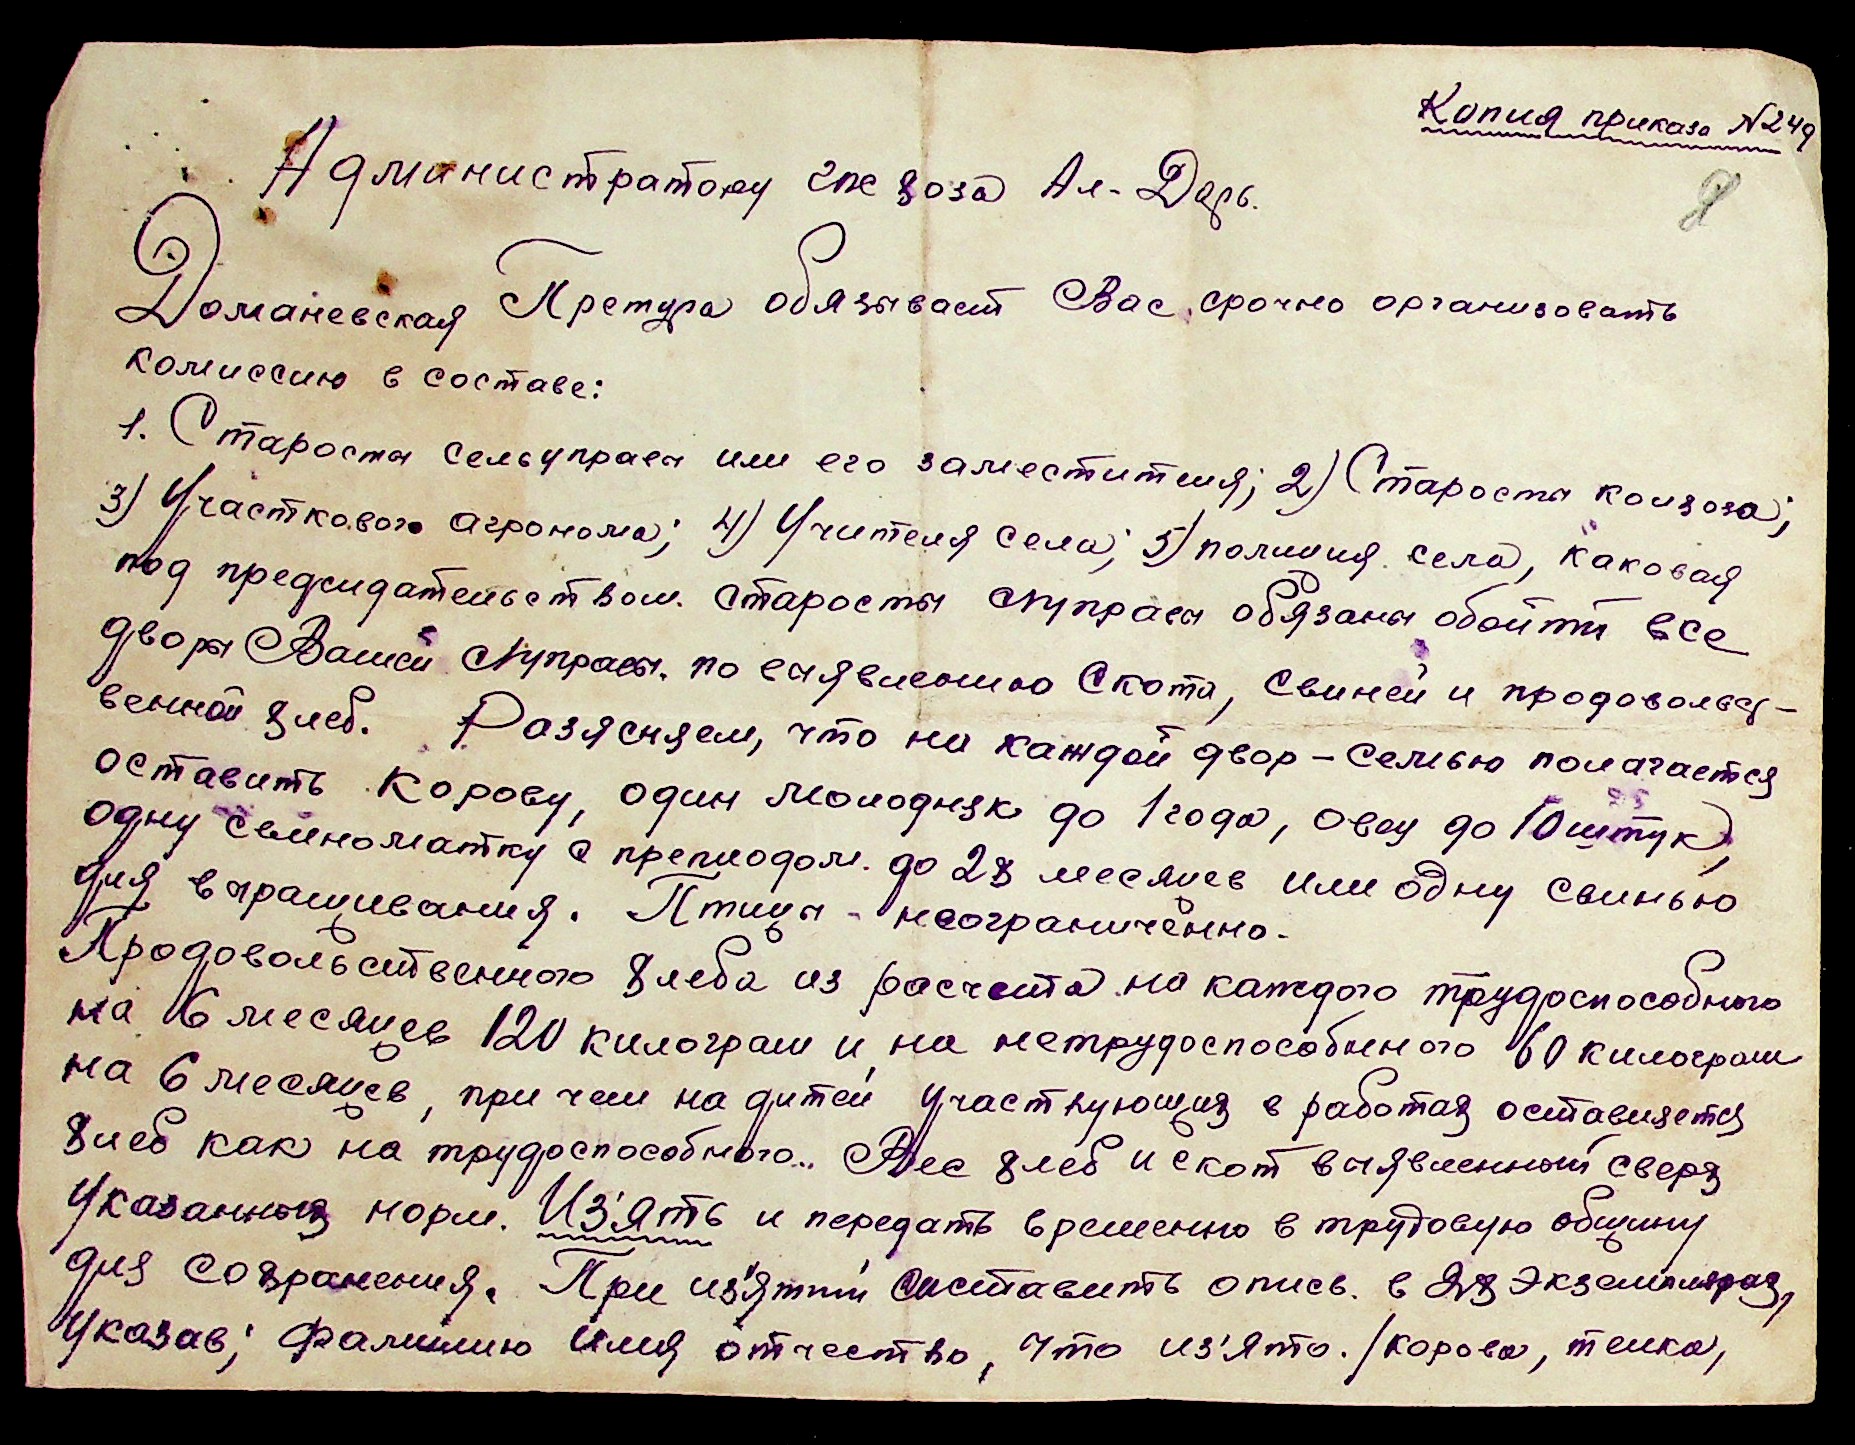 Копия приказа №249
Администратору с/х хоза Ал-Дарь.
Доманевская Претура обязывает Вас срочно организовать
комиссию в составе:
1. Старосты сельуправы или его заместителя; 2) Старосты колхоза;
3) Участкового агронома; 4) Учителя села; 5) полиция села, каковая
под председательством старосты с/управы обязаны обойти все
дворы Вашей с/управы. по выявлению скота, свиней и продовольст-
венной хлеб. Разясняем, что на каждой двор - семью полагается
оставить корову, один молодняк до 1 года, овец до 10 штук,
одну свиноматку с преплодом. до 2х месяцев или одну свинью
для выращивания. Птицы - неограниченно.
Продовольственного хлеба из расчета на каждого трудоспособного
на 6 месяцев 120 килограм и на нетрудоспособнного 60 килограм
на 6 месяцев, при чем на дитей участвующих в работах оставляется
хлеб как на трудоспособного.. Вес хлеб и скот выявленный сверх
указанных норм. Из'ять и передать временно в трудовую общину
для сохранения. При из'ятии составить опись. в 2х экземплярах,
указав; фамилию имя отчество, что из'ято. /корова, телка,